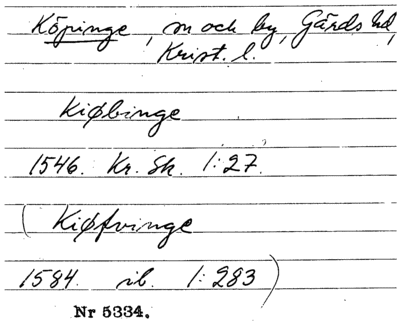 Köpinge, sn och by, Gärds hd,
Krist. l.
Kiøbinge
1546. Kr. Sk. 1:27.
(Kiøfvinge
1584. ib. 1:283)
Nr 5334.